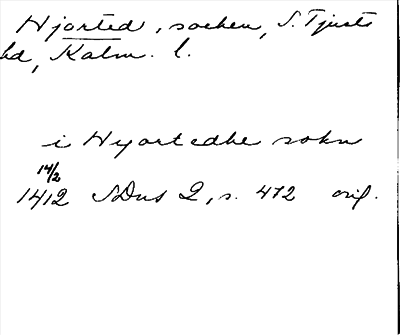 Hjorted, socken, S. Tjusts
hd, Kalm. l.
i Hyortedhe sokn
14/2
1412 SDns 2, s. 472 orig.